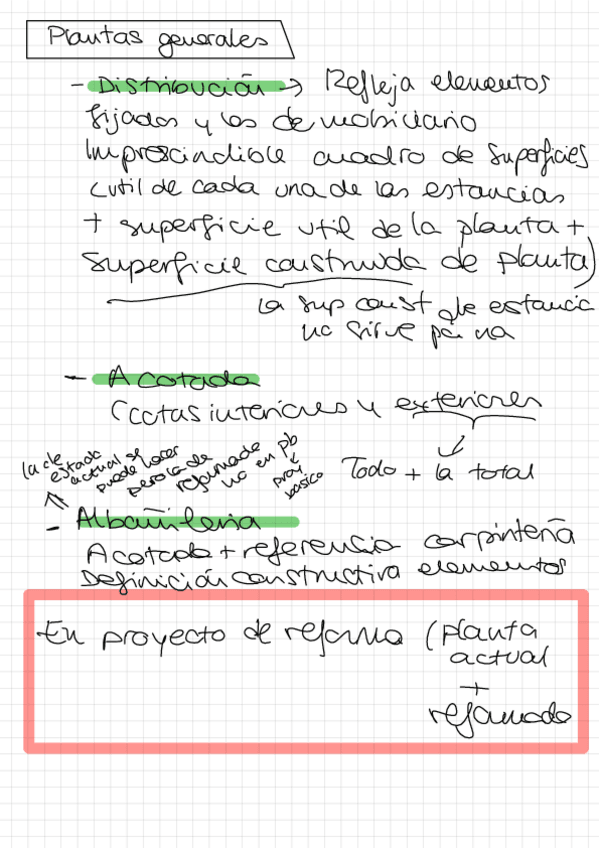 Plantas generales
- Distribución → Refleja elementos
fijados y los de mobiliario
Imprescindible cuadro de superficies
(util de cada una de las estancias
+ superficie util de la planta +
superficie construida de planta)
la sup const de estancia
no sirve pa na
- Acotada
(cotas interiores y exteriores
Todo + la total
la de
estado
actual sf
puede hacer
pero la de
reformado
no en pb
proy
básico
- Albañileria
Acotado + referencia carpintería
Definición constructiva elementos
En proyecto de reforma (planta
actual
+
reformado